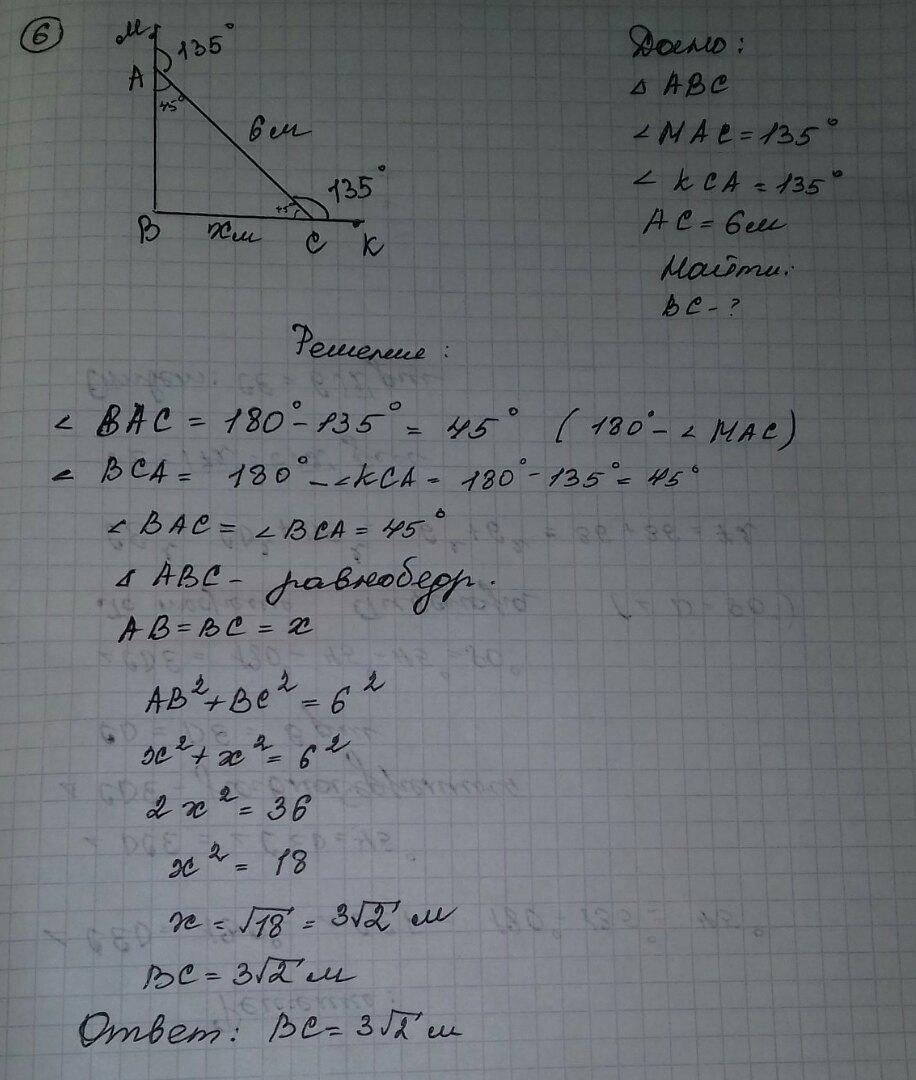 6
М 135°
А
45°
6м
135°
45°
В хм С К
Дано:
△ ABC
∠ MAC = 135°
∠ KCA = 135°
AC = 6м
Найти:
BC - ?
Решение:
∠ BAC = 180° - 135° = 45° (180° - ∠ MAC)
∠ BCA = 180° - ∠KCA = 180° - 135° = 45°
∠ BAC = ∠ BCA = 45°
△ ABC - равнобедр.
AB = BC = x
AB² + BC² = 6²
x² + x² = 6²
2x² = 36
x² = 18
x = √18 = 3√2 м
BC = 3√2 м
Ответ: BC = 3√2 м